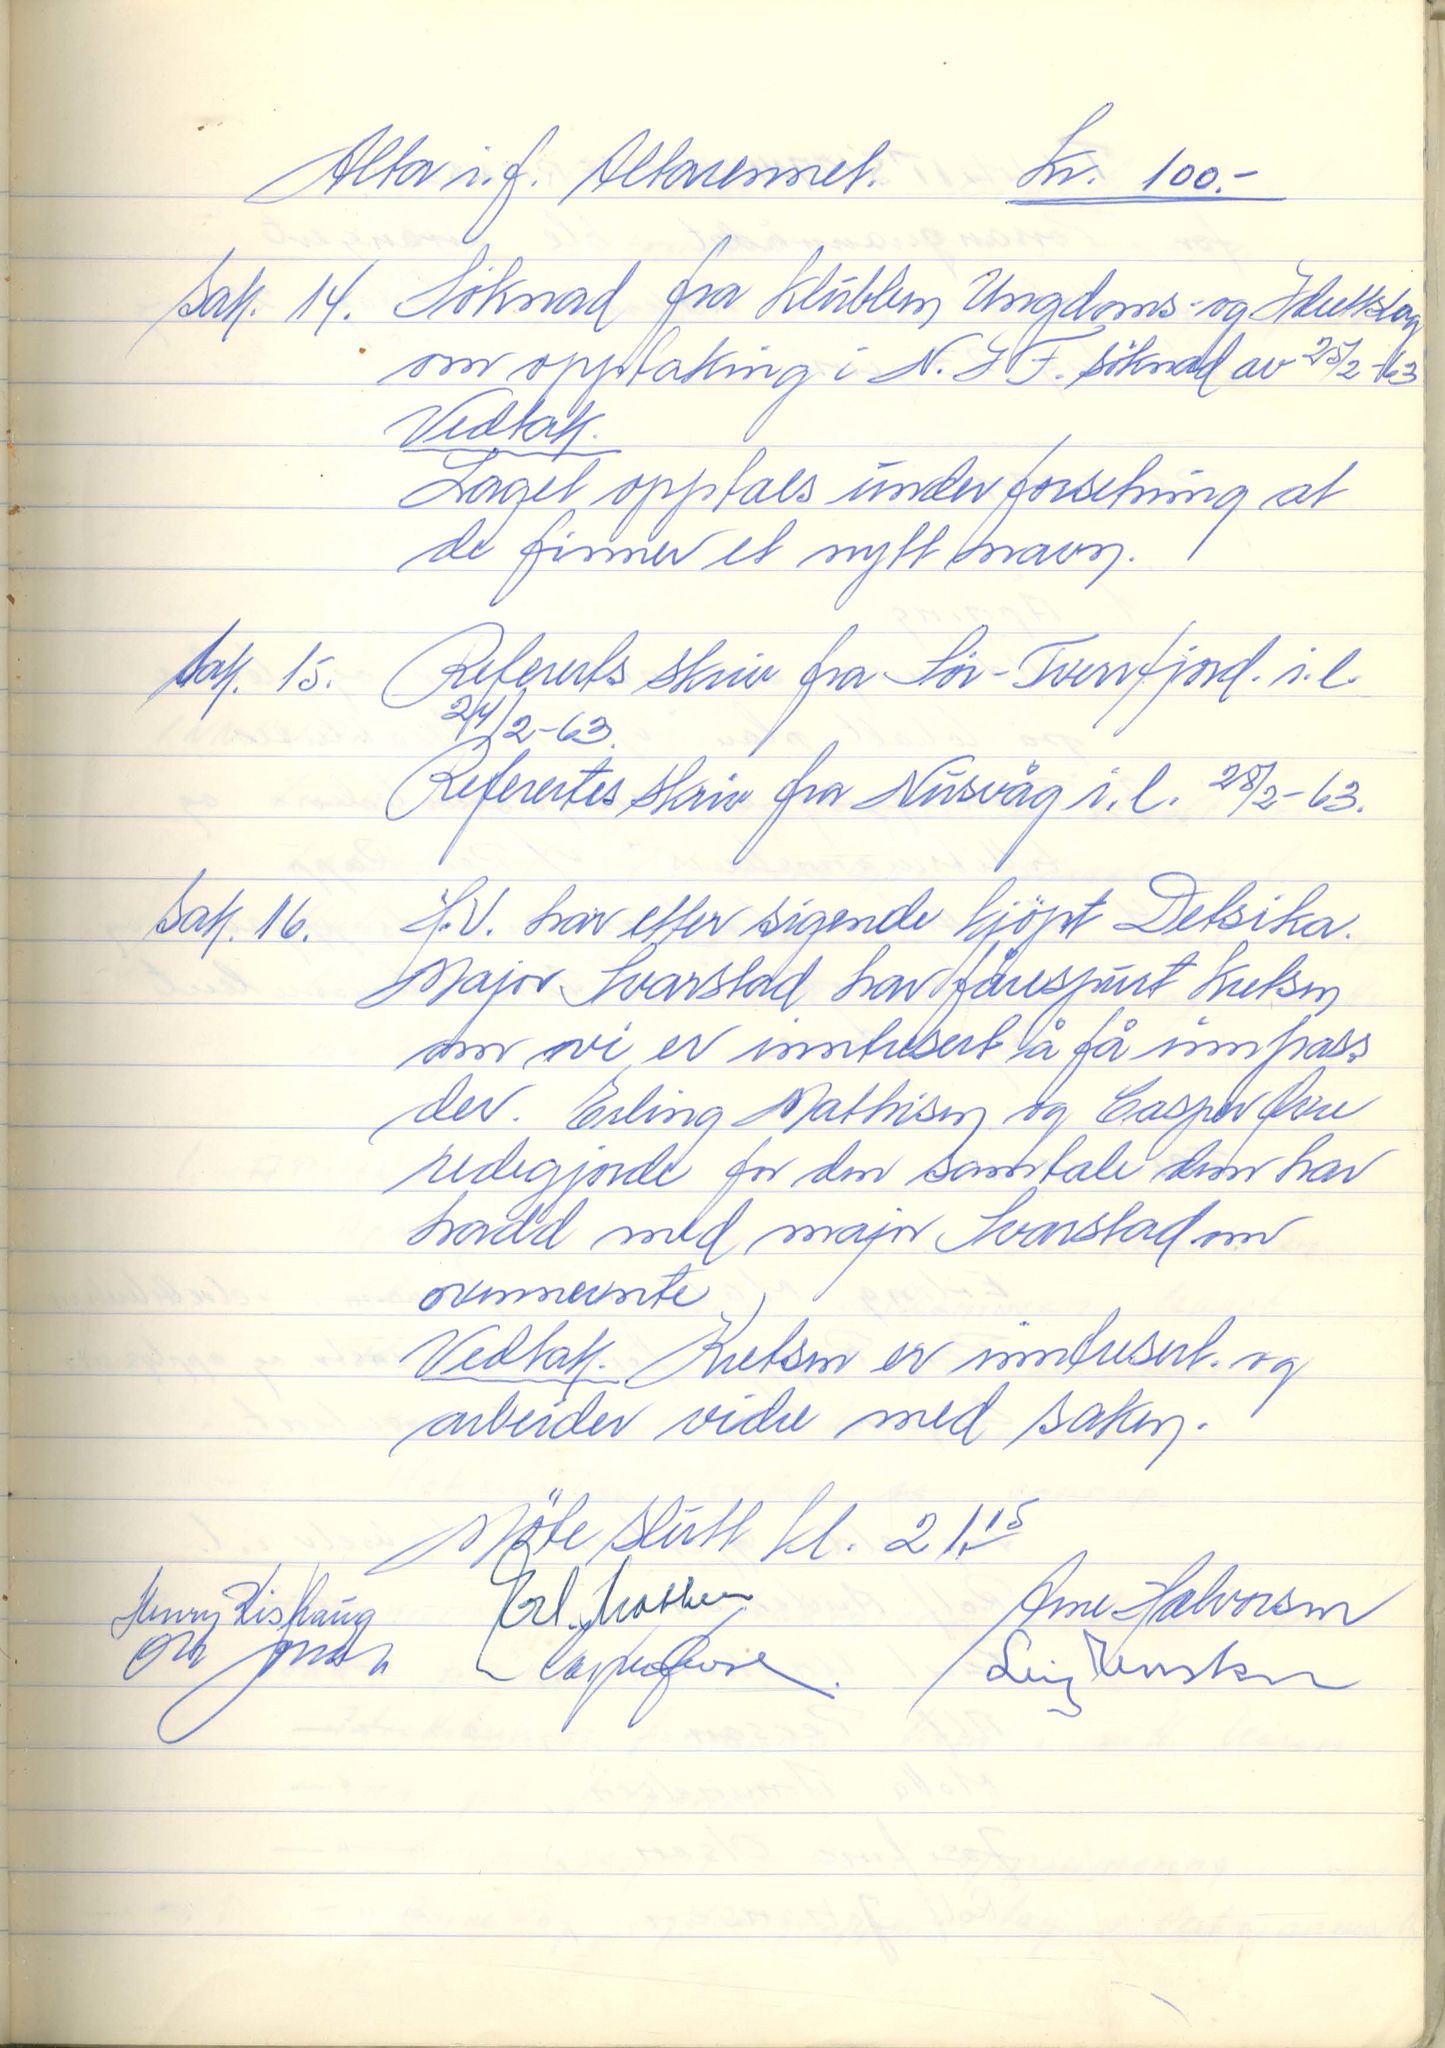 Alta i.f. Altarennet. Kr. 100.-
Sak. 14. Søknad fra Klubben Ungdoms- og Idrettslag
om opptaking i N.I.F. søknad av 25/2-63
Vedtak.
Laget opptaes under forsetning at
de finner et nytt navn.
Sak. 15. Refererts skriv fra Sör-Tverrfjord. i.l.
24/2-63.
Referertes skriv fra Nusvåg i.l. 28/2-63.
Sak. 16. H.V. har etter sigende kjöpt Detsika.
Major Svarstad har förespurt kretsen
om vi er inntresert å få innpass
der. Erling Mathisen og Casper
redegjorde for den samtale dem har
hadd med major Svarstad om
ovennevnte
Vedtak. Kretsen er inntresert. og
arbeider vidre med saken.
Möte slutt kl. 21.15
Henry Erl. Mathisen Arne Halvorsen